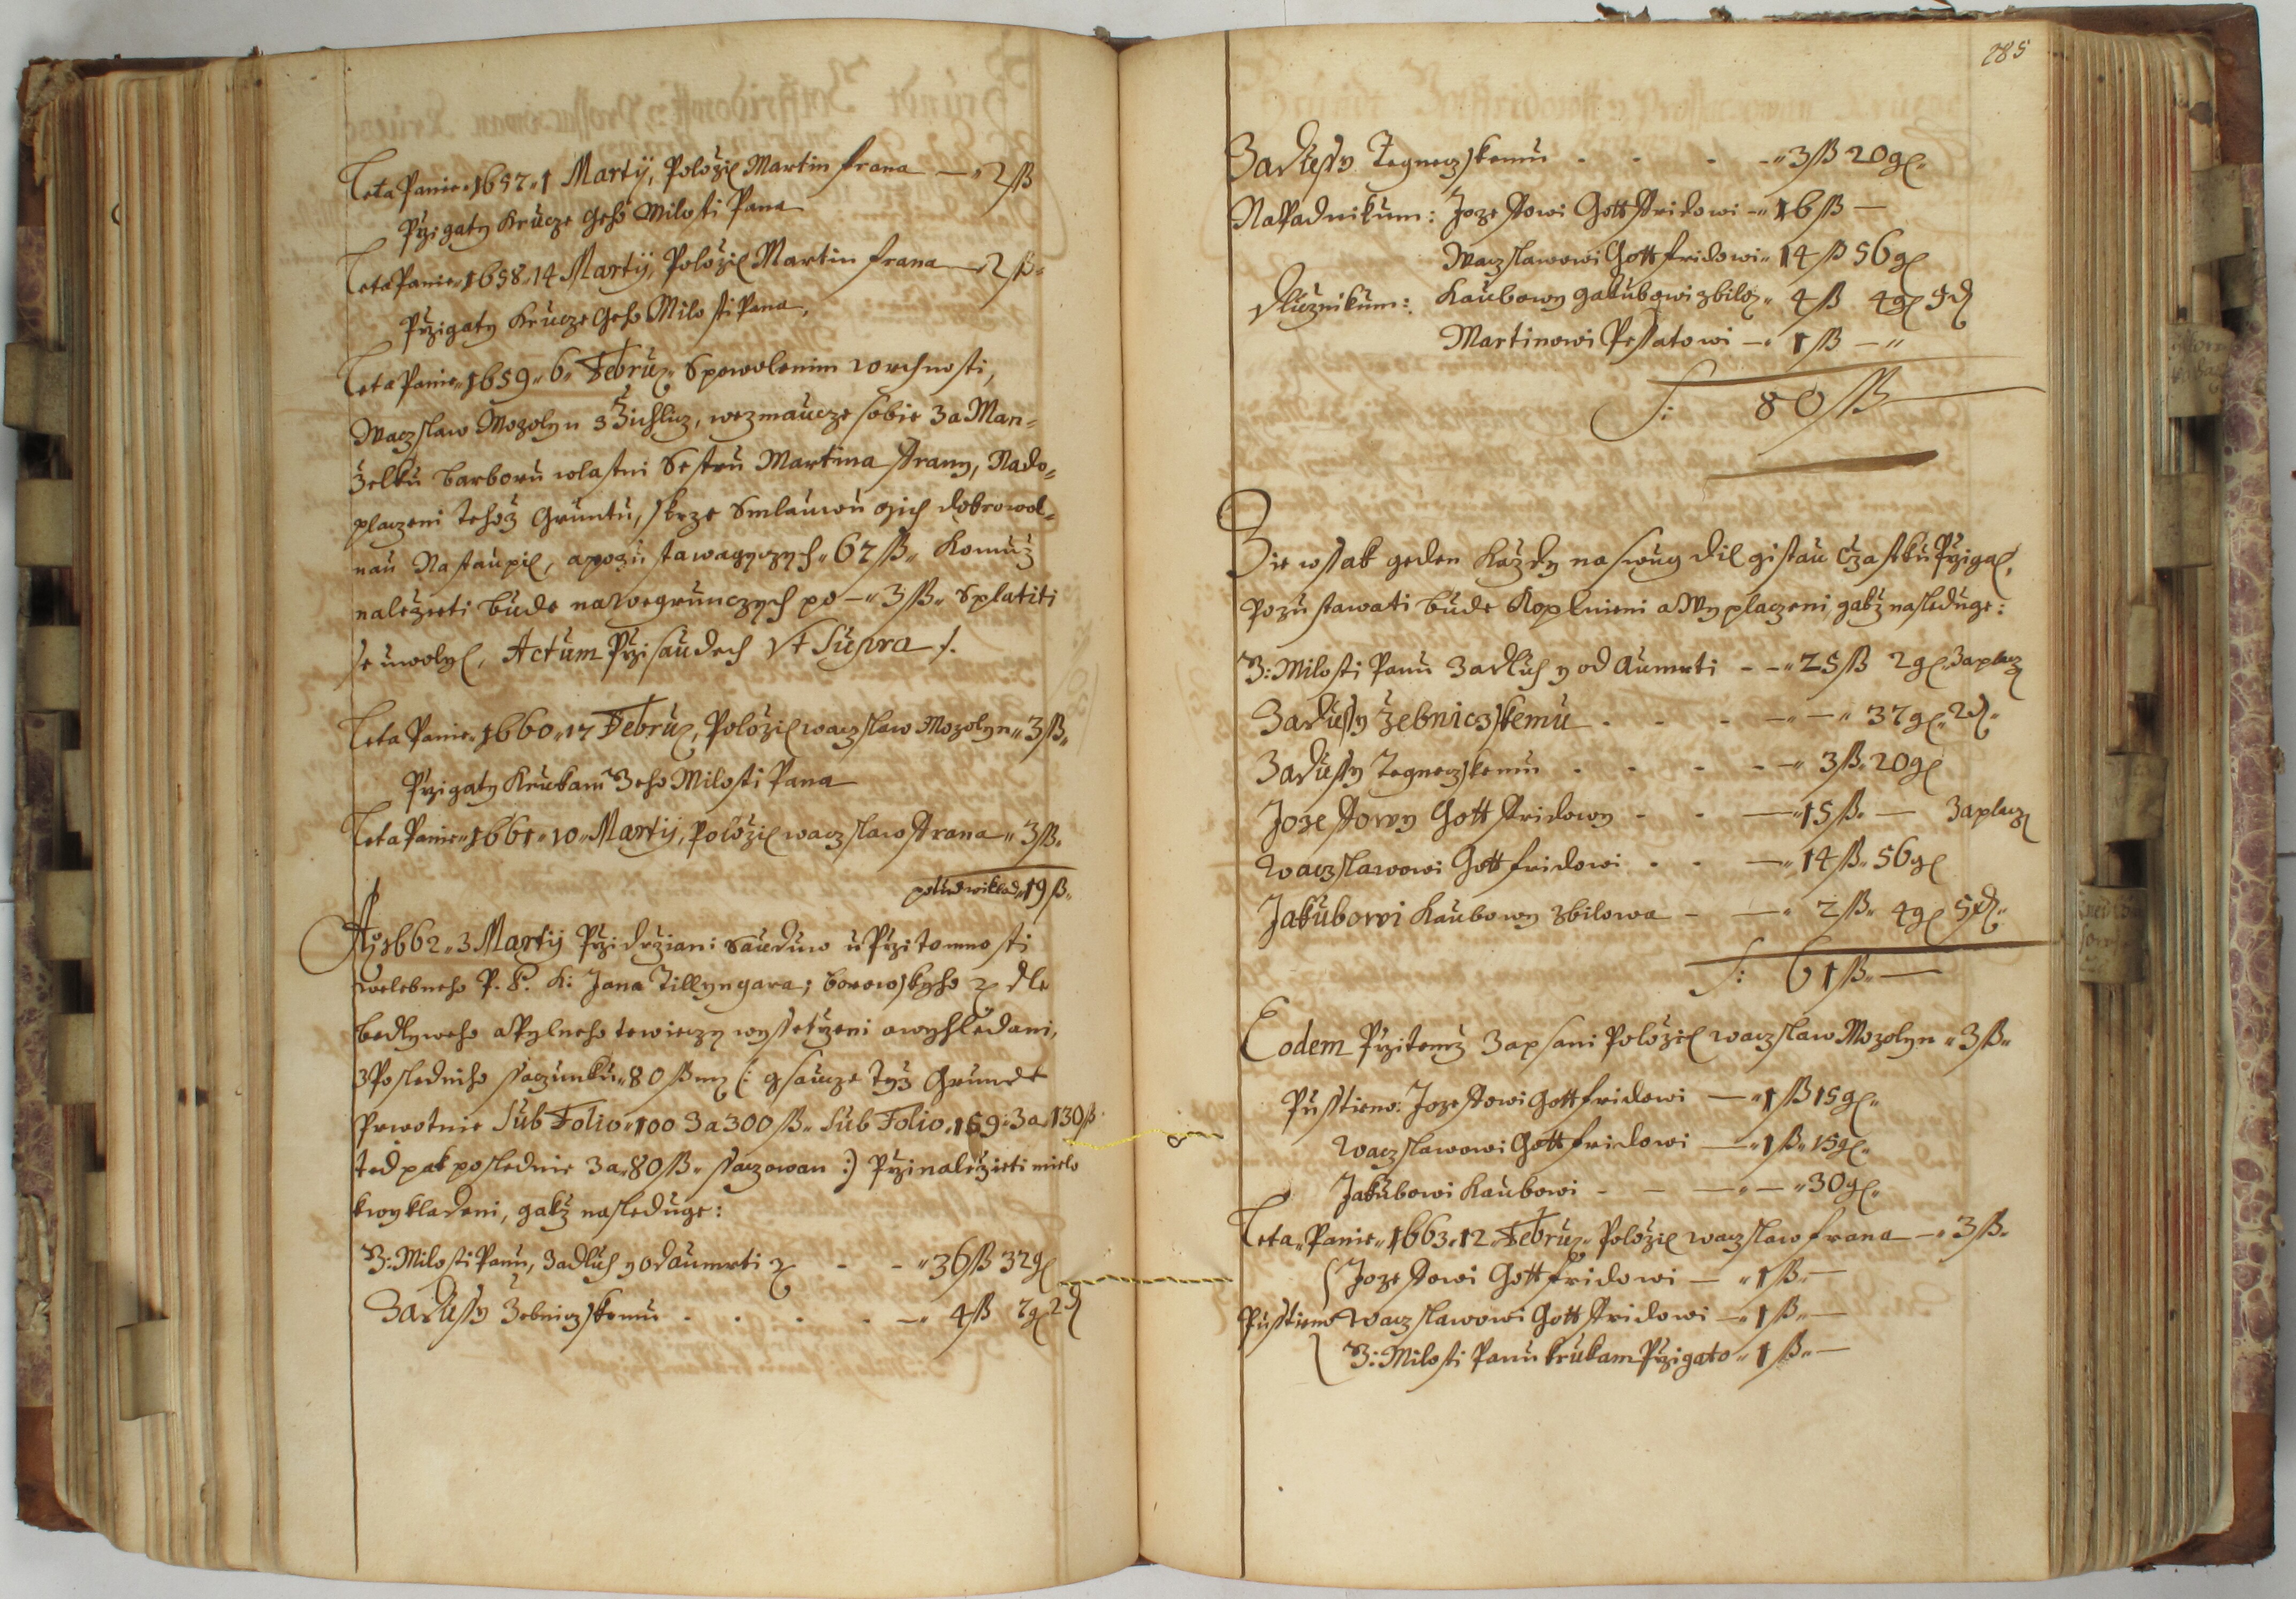 Leta Panie 1657 1 Martij, Položil Martin Frana — 2 ß
Przigaty k rucze Geho Milosti Pana
Leta Panie 1658 14 Martij, Položil Martin Frana — 2 ß
Przigaty k rucze Geho Milosti Pana,
Leta Panie 1659 6 Febru: S powolenim wrchnosti,
Waczslaw Mozolyn z Žichlicz, wezmaucze sobie za Man=
želku Barboru wlastni Sestru Martina Frany, Na do=
placzeni tehož Gruntu, skrze Smlauwu gich dobrowol=
nau Nastaupil, a pozustawagyczych 67 ß Komuž
naležeti bude na Wegrunczych po — 3 ß Splatiti
se uwolyl, Actum Przi saudech Vt Supra /.
Leta Panie 1660 17 Febru: Položil waczslaw Mozolyn 3 ß
Przigaty k rukam Jeho Milosti Pana
Leta Panie 1661 10 Martij, Položil waczslaw Frana 3 ß
potud wiklad 19 ß
Ao 1662 3 Martij Przi držiani Sauduw u Przitomnosti
welebneho P. P. K: Jana Tillyngara; borowskyho z dle
bedlyweho a Pylneho te wieczy wyssetrzeni a wyhledani,
z Posledniho ssaczunku 80 ß mz (: gsaucze tyž Grundt
Prwotnie Sub Folio 100 za 300 ß Sub Folio 169 za 130 ß
ted pak poslednie za 80 ß ssaczowan :) Przinaležeti mielo
k wykladani, gakž nasleduge:
J: Milosti Panu, za dluh y odaumrti z - - 36 ß 32 gl
Zadussy Žebniczskemu - - - - — 4 ß 7 gl 2 d
285
Zadussy Tegneczskemu - - - - 3 ß 20 gl
Napadnikum: Jozeffowi Gottffridowi — 16 ß —
Waczslawowi Gottfridowi 14 ß 56 gl
Dlužnikum: Kaubowy Gakubowi zbilo: 4 ß 4 gl 5 d
Martinowi Pessatowi — 1 ß —
S: 80 ß
Žie wssak geden každy na swug dil gistau cžastku Przigal,
Pozustawati bude k oplnieni a Wyplaczeni, gakž nasleduge:
J: Milosti Panu za dluh y od aumrti - - 25 ß 2 gl zaplacz
Zadussy Žebniczskemu - - - — — 37 gl 2 d
Zadussy Tegneczskemu - - - - — 3 ß 20 gl
Jozeffowy Gottffridowy - - — 15 ß — zaplacz
Waczslawowi Gottfridowi - - — 14 ß 56 gl
Jakubowi Kaubowy zbilowa - — 2 ß 4 gl 5 d
S: 61 ß —
Eodem Przi temž zapsani Položil waczslaw Mozolyn 3 ß
Pusstieno: Jozeffowi Gottfridowi — 1 ß 15 gl
Waczslawowi Gottfridowi — 1 ß 15 gl
Jakubowi Kaubowi - - — — 30 gl
Leta Panie 1663 12 Febru: Položil waczslaw Frana — 3 ß
Jozeffowi Gottfridowi — 1 ß —
Pusstieno Waczslawowi Gottffridowi — 1 ß —
J: Milosti Panu k rukam Przigato 1 ß —